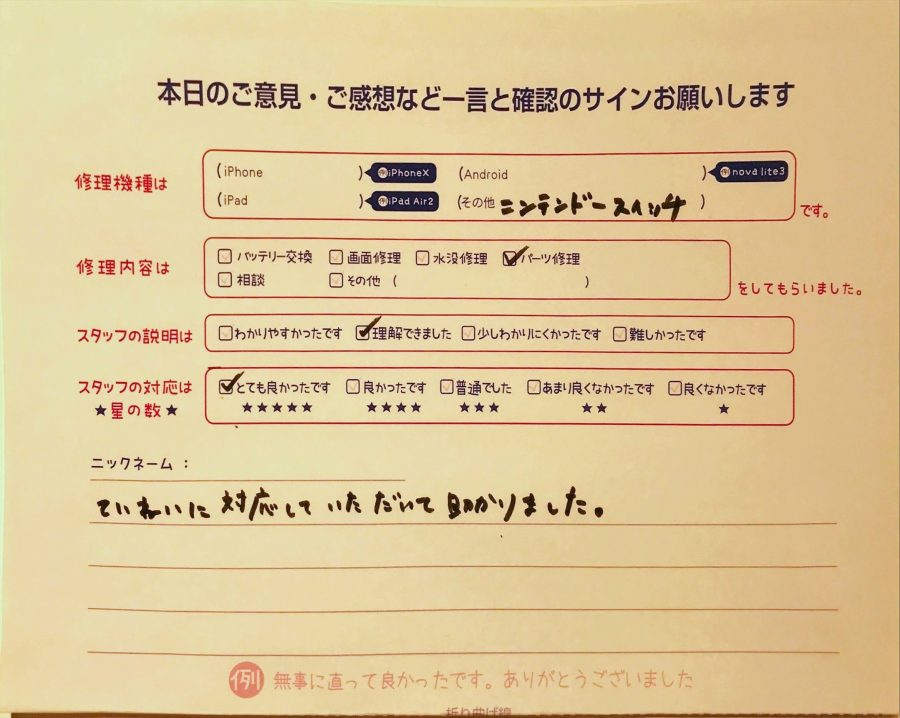 本日のご意見・ご感想など一言と確認のサインお願いします
修理機種は
(iPhone ) 例iPhoneX (Android ) 例nova lite3
(iPad ) 例iPad Air2 (その他 ニンテンドースイッチ )
です。
修理内容は
バッテリー交換 画面修理 水没修理 パーツ修理
相談 その他 ( )
をしてもらいました。
スタッフの説明は
わかりやすかったです 理解できました 少しわかりにくかったです 難しかったです
スタッフの対応は
★星の数★
とても良かったです 良かったです 普通でした あまり良くなかったです 良くなかったです
★★★★★ ★★★★ ★★★ ★★ ★
ニックネーム：
ていねいに対応していただいて助かりました。
例 無事に直って良かったです。ありがとうございました
折り曲げ線